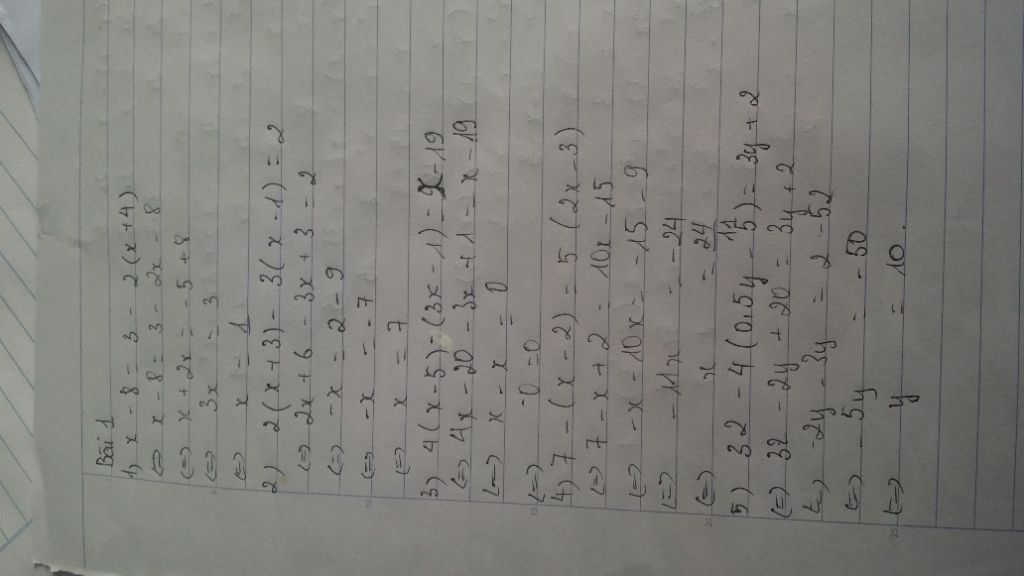 Bài 1
1) x - 8 = 3 - 2(x+4)
(=) x - 8 = 3 - 2x - 8
(=) x + 2x = -5 + 8
(=) 3x = 3
(=) x = 1
2) 2(x+3) - 3(x-1) = 2
(=) 2x + 6 - 3x + 3 = 2
(=) -x = 2 - 9
(=) -x = -7
(=) x = 7
3) 4(x-5) - (3x-1) = x - 19
(=) 4x - 20 - 3x + 1 = x - 19
(=) x - x = 0
(=) 0 = 0
4) 7 - (x-2) = 5(2x-3)
(=) 7 - x + 2 = 10x - 15
(=) -x - 10x = -15 - 9
(=) -11x = -24
(=) x = 24/11
5) 32 - 4(0,5y - 5) = 3y + 2
(=) 32 - 2y + 20 = 3y + 2
(=) -2y - 3y = 2 - 52
(=) -5y = -50
(=) y = 10.